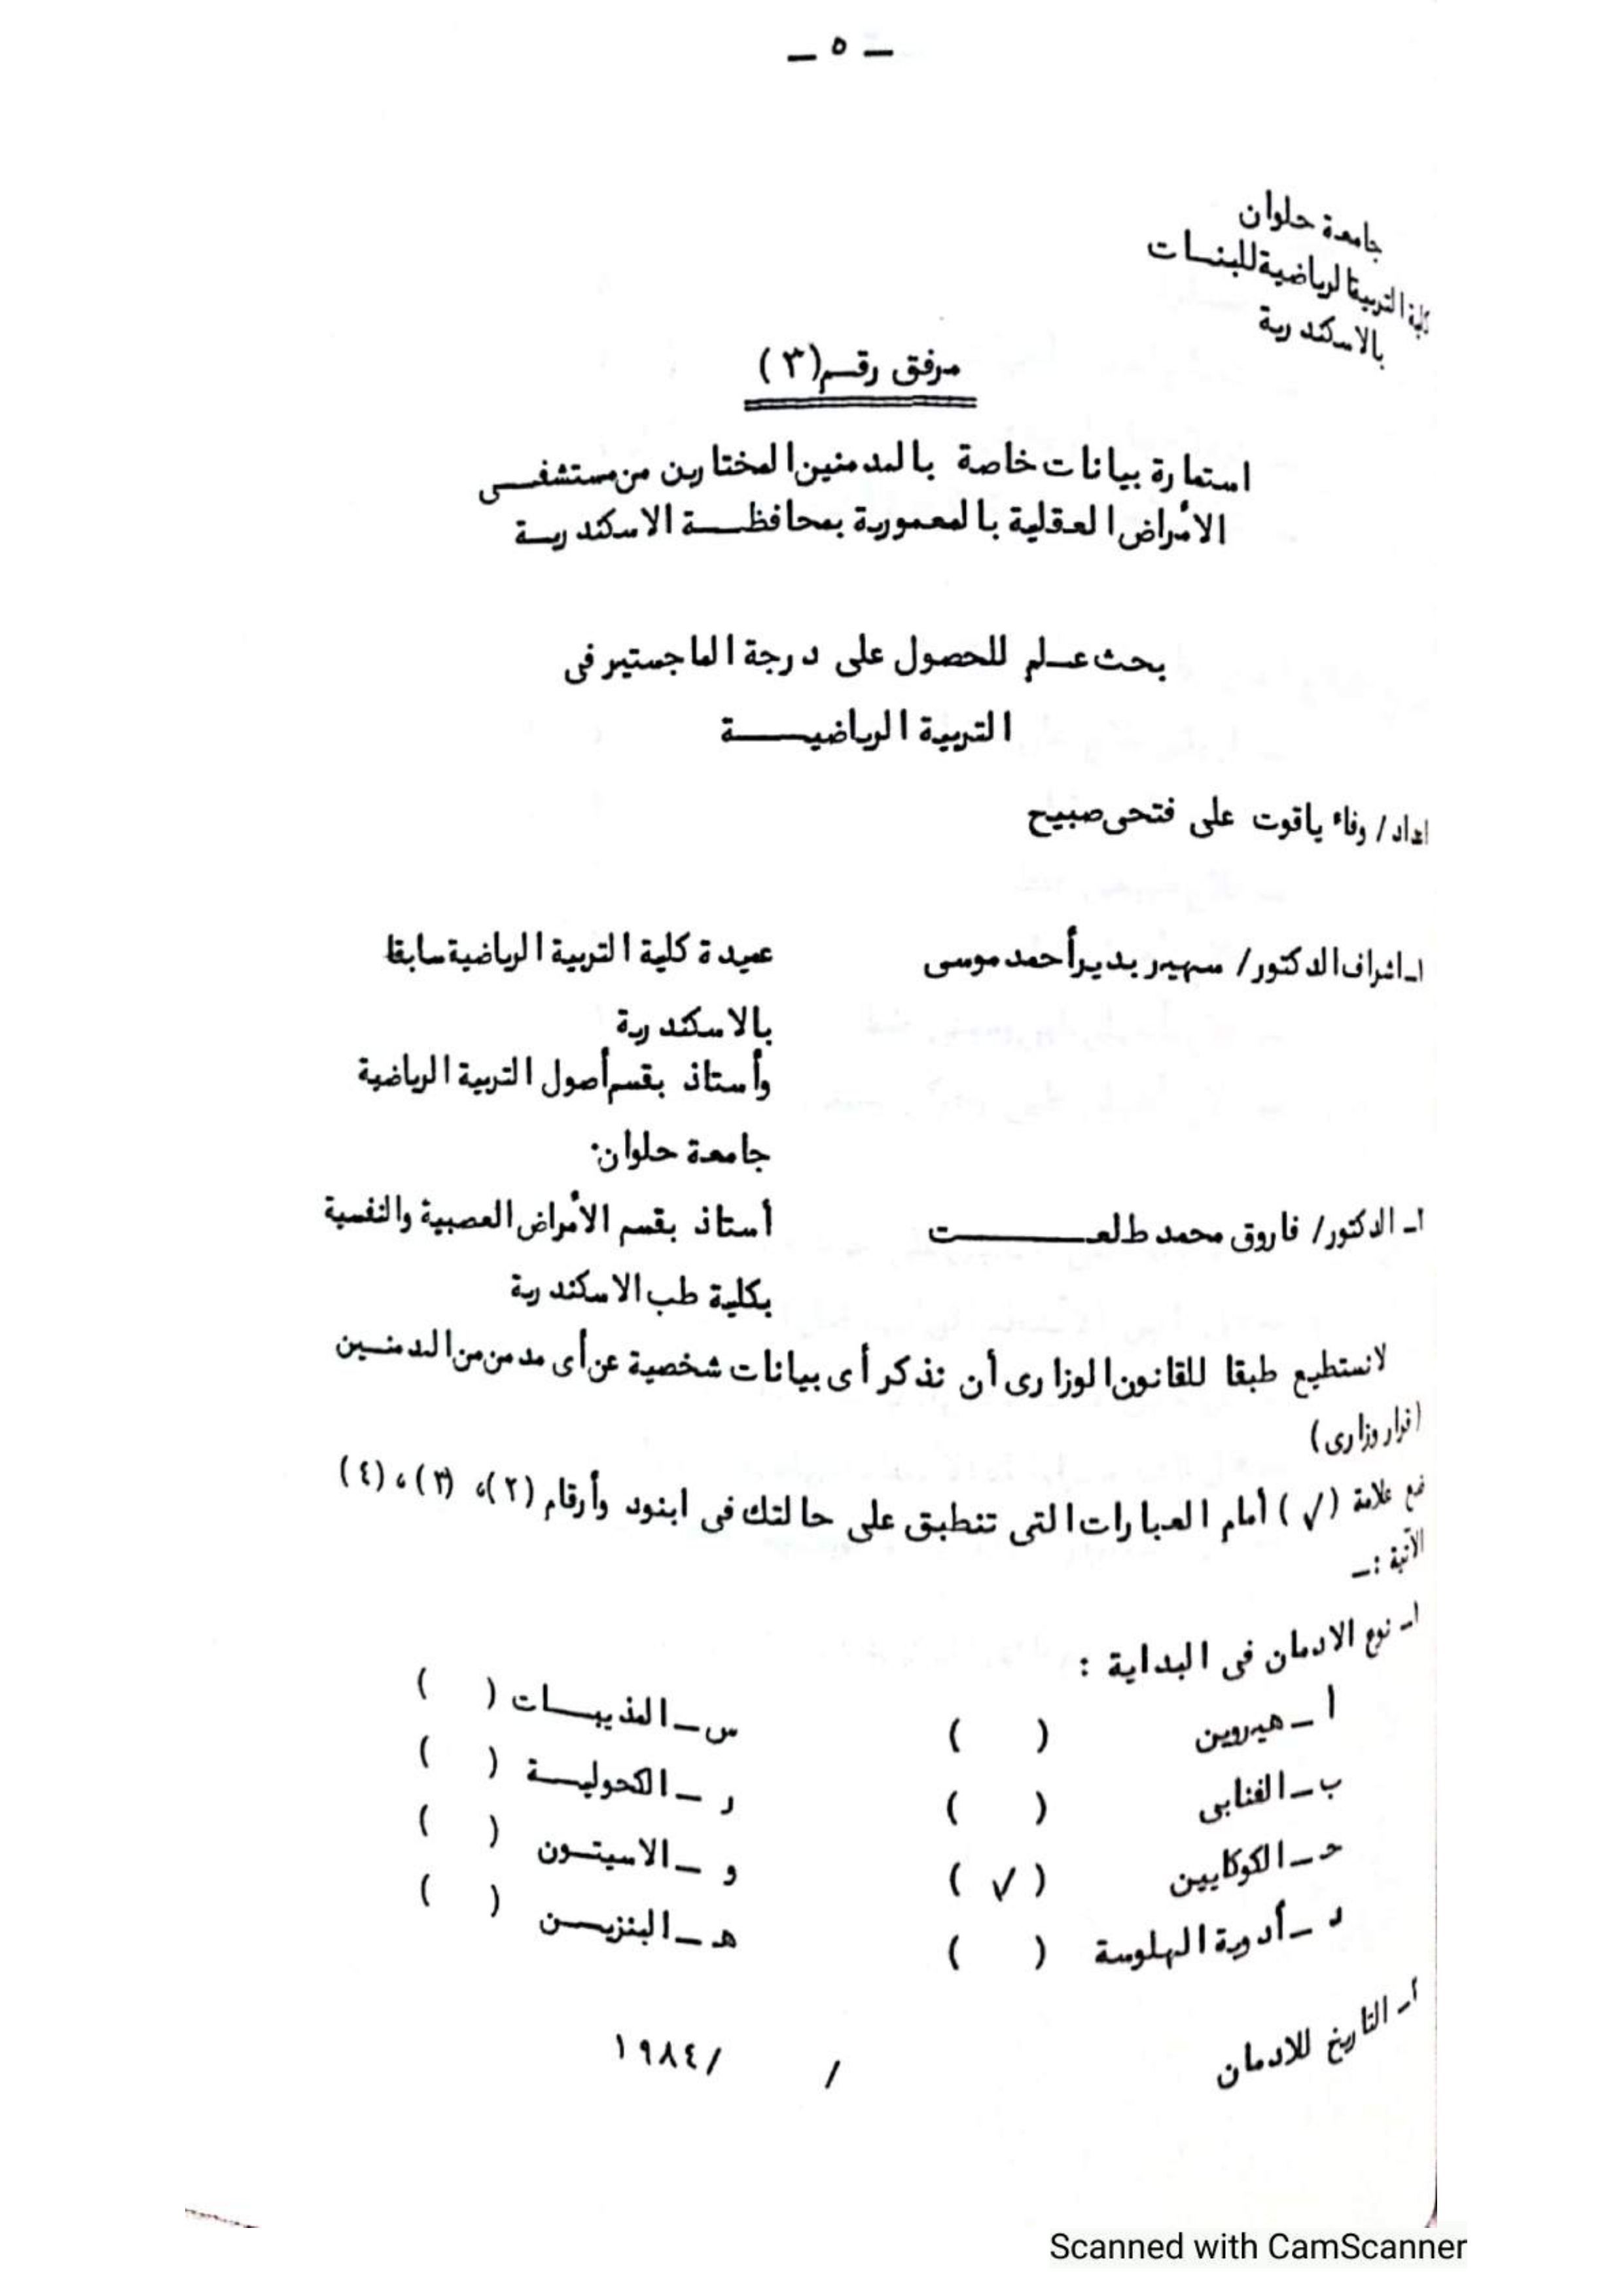 ـ ٥ ـ
جامعة حلوان
كلية التربية الرياضية للبنات
بالاسكندرية
مرفق رقم (٣)
استمارة بيانات خاصة بالمدمنين المختارين من مستشفى
الأمراض العقلية بالمعمورة بمحافظة الاسكندرية
بحث علم للحصول على درجة الماجستير فى
التربية الرياضية
اعداد / وفاء ياقوت على فتحى صبيح
١ـ اشراف الدكتور/ سهير بدير أحمد موسى    عميدة كلية التربية الرياضية سابقا
بالاسكندرية
وأستاذ بقسم أصول التربية الرياضية
جامعة حلوان.
٢ـ الدكتور/ فاروق محمد طلعت    أستاذ بقسم الأمراض العصبية والنفسية
بكلية طب الاسكندرية
لانستطيع طبقا للقانون الوزارى أن نذكر أى بيانات شخصية عن أى مدمن من المدمنين
(قرار وزارى)
ضع علامة (√) أمام العبارات التى تنطبق على حالتك فى ابنود وأرقام (٢)، (٣)، (٤)
الآتية :ـ
١ـ نوع الادمان فى البداية :
أ ـ هيروين (    )    س ـ المذيبات (    )
ب ـ القنابى (    )    ر ـ الكحولية (    )
حـ ـ الكوكايين ( √ )    و ـ الاسيتون (    )
د ـ أدوية الهلوسة (    )    هـ ـ البنزين (    )
٢ـ التاريخ للادمان    /    /١٩٨٤
Scanned with CamScanner